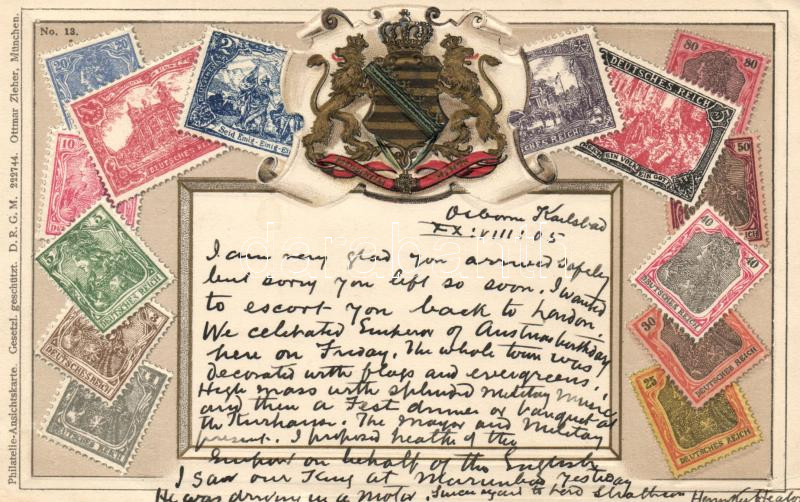 No. 13.
Philatelie-Ansichtskarte. Gesetzl. geschützt. D. R. G. M. 222744. Ottmar Zieher, München.
20
20
2
Seid Einig-Einig-Ei
DEUTSCHES
3
CHES REICH
DEUTSCHES REICH
EIN VOLK EIN GOT
80
80
10
50
5
5
DEUTSCHES REICH
40
40
DEUTSCHES REICH
DEUTSCHES REICH
30
DEUTSCHES REICH
DEUTSCHES REICH
25
DEUTSCHES REICH
darabanth
Osborne Karlsbad
XX:VIII:05
I am very glad you arrived safely
but sorry you left so soon. I wanted
to escort you back to London.
We celebrated Emperor of Austrias birthday
here on Friday. The whole town was
decorated with flags and evergreens.
High mass with splendid Military Music
and then a Fest dinner or banquet at
the Kurhaus. The Mayor and Military
present. I proposed health of the
Emperor on behalf of the English
I saw our King at Marienbad yesterday
He was driving in a motor.